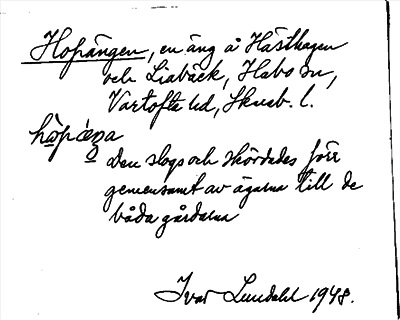 Hopängen, en äng å Hästhagen
och Liabäck, Habo sn,
Vartofta hd, Skarab. l.
hòpǽŋa
Den slogs och skördades förr
gemensamt av ägarna till de
båda gårdarna
Ivar Lundahl 1948.